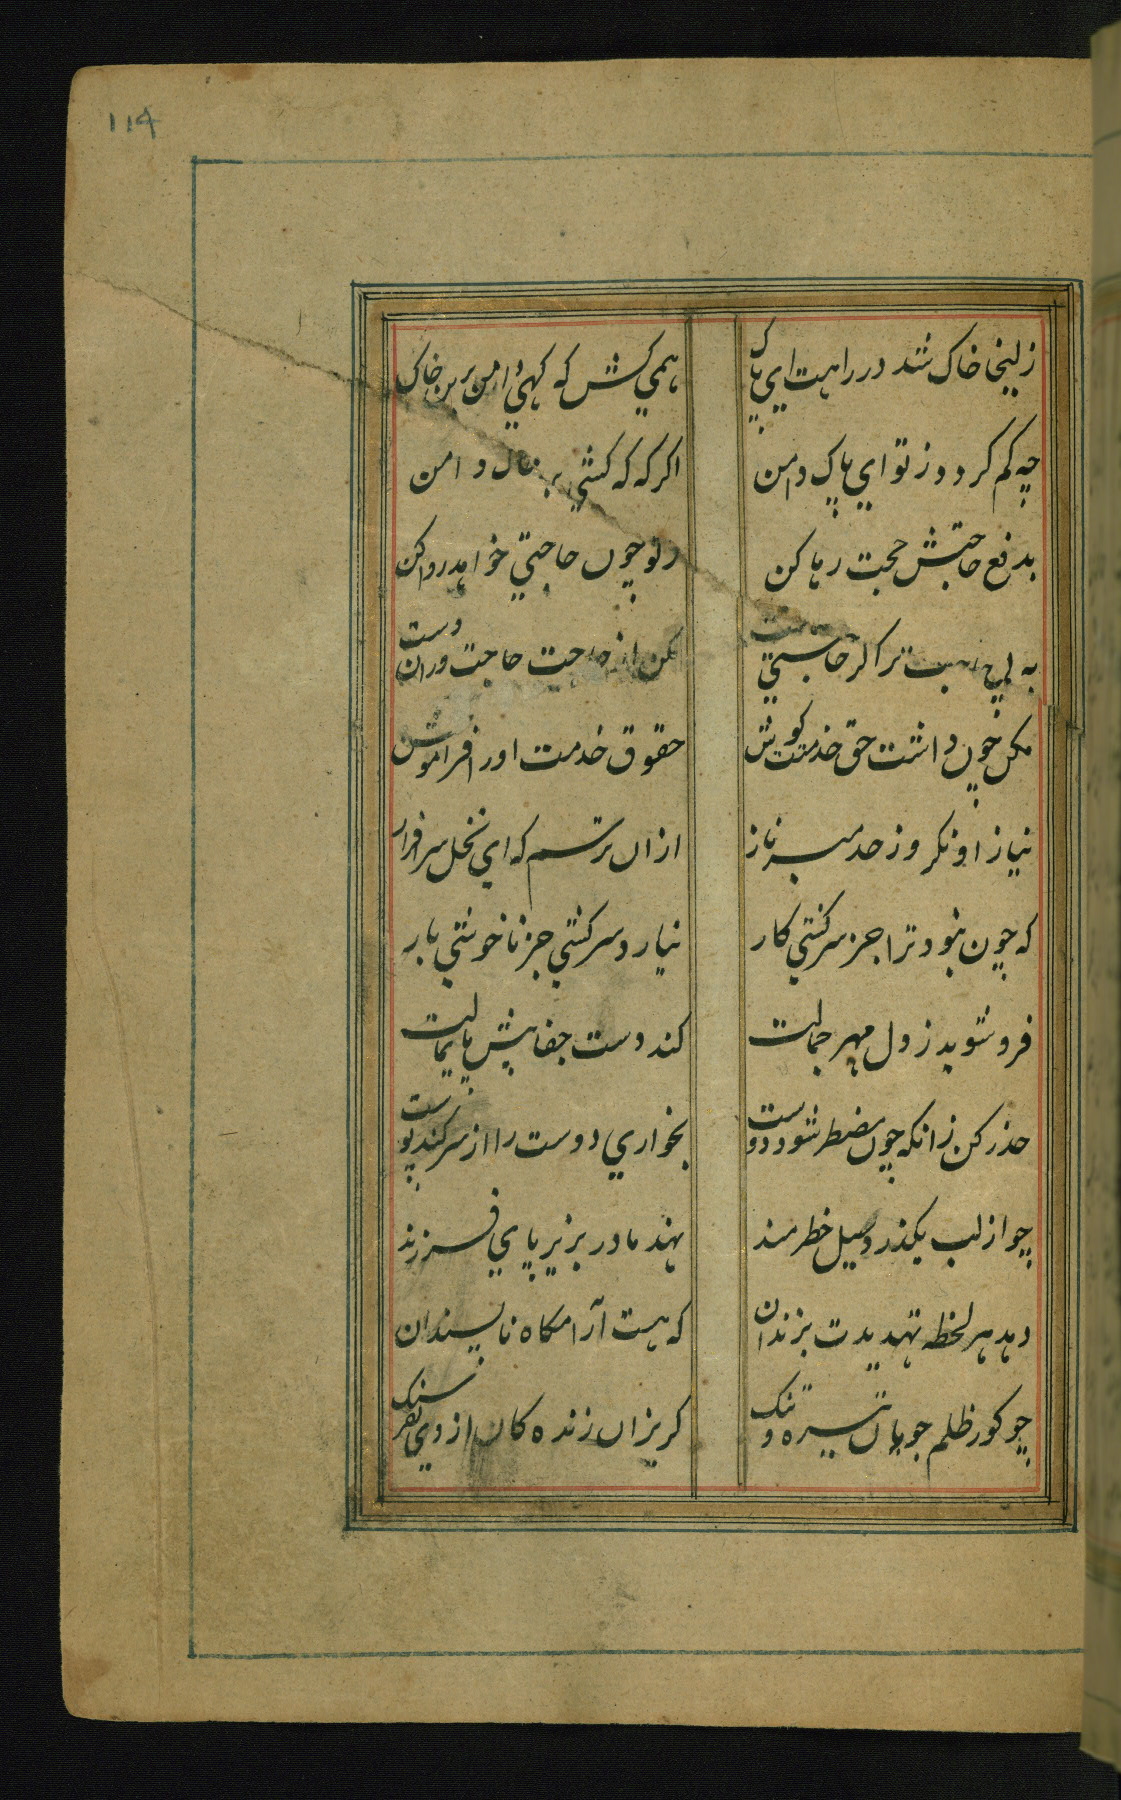 ۱۱۴
زلیخا خاک شد در راهت ای پاک
همی کش که کهی دامن برین خاک
چه کم کردد ز تو ای پاک دامن
اکر که که کشی بر خاک دامن
بدفع حاجتش حجت رها کن
ز تو چون حاجتی خواهد روا کن
به بی ترا کر حاجتی
مکن از حاجت حاجت وران دست
مکن چون داشت حق خدمت کوش
حقوق خدمت او را فراموش
نیاز او نکر وز حد مبر ناز
ازان ترسم که ای نخل سرافراز
که چون نبود ترا جز سرکشی کار
نیارد سرکشی جز ناخوشی بار
فروشوید ز دل مهر جمالت
کند دست جفا پیش پایمالت
حذر کن زانکه چون مضطر شود دوست
بخواری دوست را از سر کند پوست
چو از لب بکذرد سیل خطرمند
نهد مادر بزیر پای فرزند
دهد هر لحظه تهدیدت بزندان
که هست آرامکاه ناپسندان
چو کور ظلم جویان تیره و تنک
کریزان زنده کان از وی